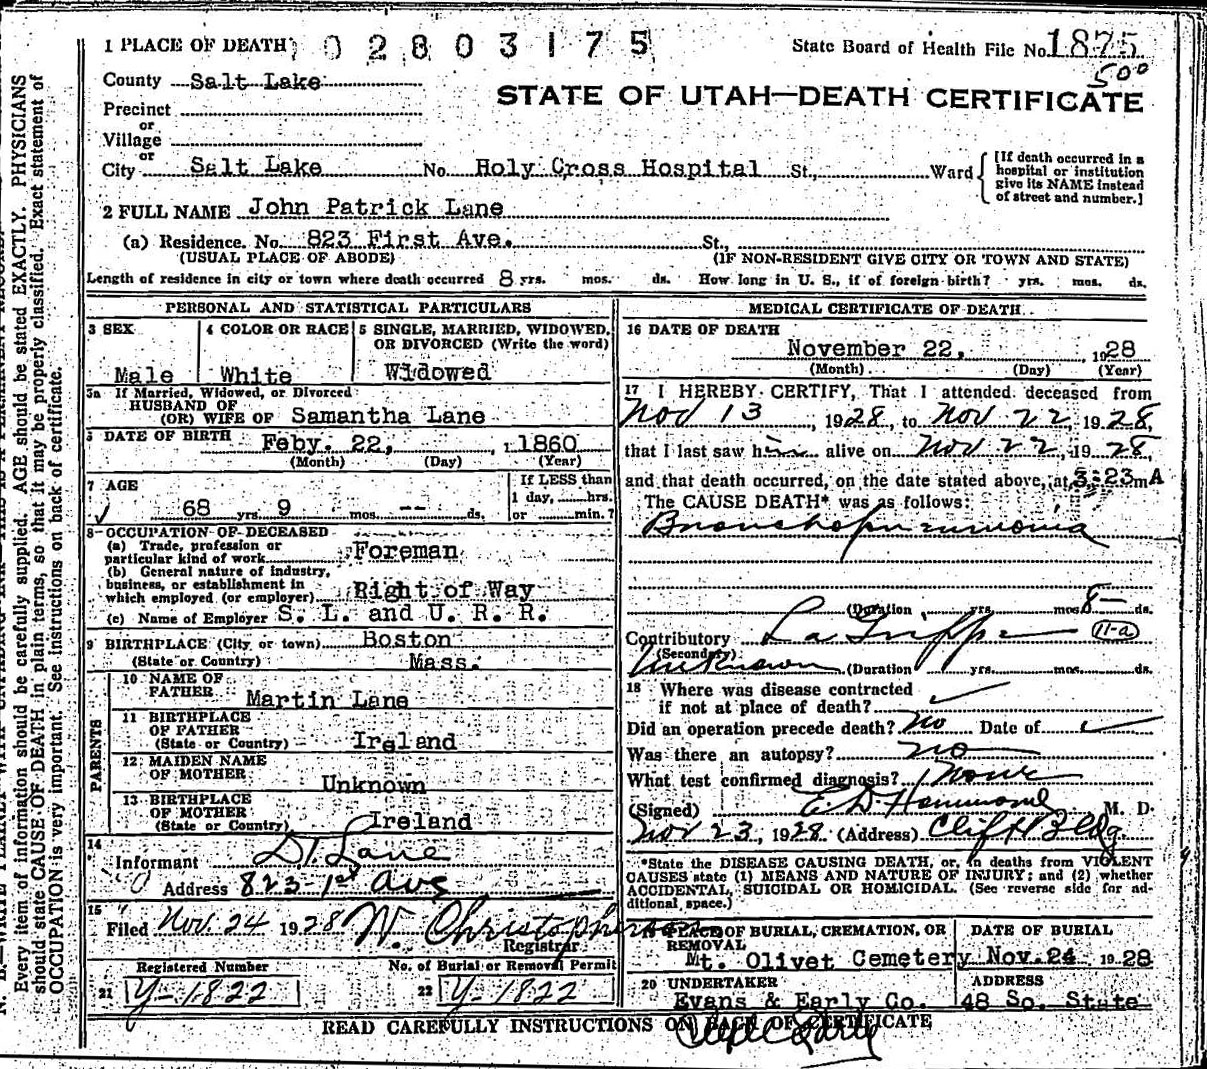 1 PLACE OF DEATH 02803175 State Board of Health File No. 1875
500
County Salt Lake
STATE OF UTAH—DEATH CERTIFICATE
Precinct
or
Village
or
City Salt Lake No. Holy Cross Hospital St., Ward
[If death occurred in a
hospital or institution
give its NAME instead
of street and number.]
2 FULL NAME John Patrick Lane
(a) Residence. No. 823 First Ave. St.,
(USUAL PLACE OF ABODE) (IF NON-RESIDENT GIVE CITY OR TOWN AND STATE)
Length of residence in city or town where death occurred 8 yrs. mos. ds. How long in U. S., if of foreign birth? yrs. mos. ds.
PERSONAL AND STATISTICAL PARTICULARS
3 SEX
Male
4 COLOR OR RACE
White
5 SINGLE, MARRIED, WIDOWED,
OR DIVORCED (Write the word)
Widowed
5a If Married, Widowed, or Divorced
HUSBAND OF
(OR) WIFE OF Samantha Lane
DATE OF BIRTH Feby. 22, 1860
(Month) (Day) (Year)
7 AGE
68 yrs. 9 mos. -- ds.
If LESS than
1 day, hrs.
or min.?
8 OCCUPATION OF DECEASED
(a) Trade, profession or
particular kind of work Foreman
(b) General nature of industry,
business, or establishment in
which employed (or employer) Right of Way
(c) Name of Employer S. L. and U. R. R.
9 BIRTHPLACE (City or town) Boston
(State or Country) Mass.
PARENTS
10 NAME OF
FATHER Martin Lane
11 BIRTHPLACE
OF FATHER
(State or Country) Ireland
12 MAIDEN NAME
OF MOTHER
Unknown
13 BIRTHPLACE
OF MOTHER
(State or Country) Ireland
14
Informant D.T. Lane
Address 823-1st Ave
15
Filed Nov. 24 1928
Registrar
Registered Number No. of Burial or Removal Permit
21 Y-1822 22 Y-1822
MEDICAL CERTIFICATE OF DEATH
16 DATE OF DEATH
November 22, 1928
(Month) (Day) (Year)
17 I HEREBY CERTIFY, That I attended deceased from
Nov 13, 1928, to Nov 22, 1928,
that I last saw him alive on Nov 22, 1928,
and that death occurred, on the date stated above, at 3:23 m A
The CAUSE DEATH* was as follows:
Bronchopneumonia
(Duration yrs. mos. 8 ds.
Contributory La Grippe 11-a
(Secondary)
Unknown (Duration yrs. mos. ds.
18 Where was disease contracted
if not at place of death?
Did an operation precede death? no Date of
Was there an autopsy? no
What test confirmed diagnosis? None
(Signed) E. D. Hammond M. D.
Nov 23, 1928 (Address) Clift Bldg.
*State the DISEASE CAUSING DEATH, or, in deaths from VIOLENT
CAUSES state (1) MEANS AND NATURE OF INJURY; and (2) whether
ACCIDENTAL, SUICIDAL OR HOMICIDAL. (See reverse side for ad-
ditional space.)
19 PLACE OF BURIAL, CREMATION, OR
REMOVAL
Mt. Olivet Cemetery
DATE OF BURIAL
Nov. 24 1928
20 UNDERTAKER
Evans & Early Co.
ADDRESS
48 So. State
READ CAREFULLY INSTRUCTIONS ON BACK OF CERTIFICATE
Every item of information should be carefully supplied. AGE should be stated EXACTLY. PHYSICIANS
should state CAUSE OF DEATH in plain terms, so that it may be properly classified. Exact statement of
OCCUPATION is very important. See instructions on back of certificate.